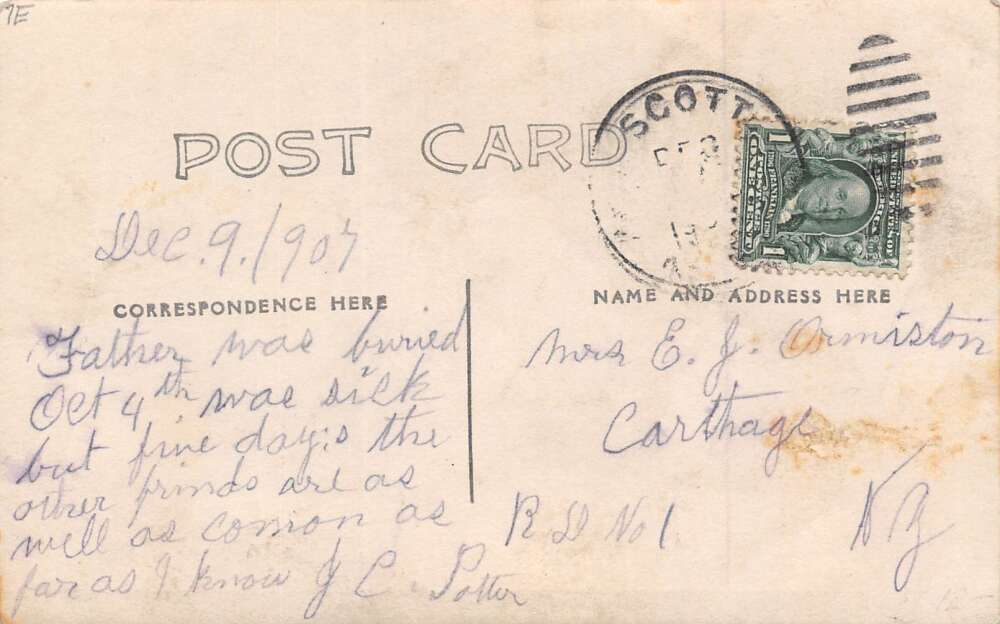 7E
SCOTT
DEC
POST CARD
UNITED STATES OF AMERICA
POSTAGE
ONE CENT
1
1
Dec. 9. 1907
CORRESPONDENCE HERE
NAME AND ADDRESS HERE
Father was buried
Oct 4th was sick
but five days the
other frinds are as
well as comon as
far as I know J C. Potter
Mrs E. J. Ormiston
Carthage
R D No 1
N Y